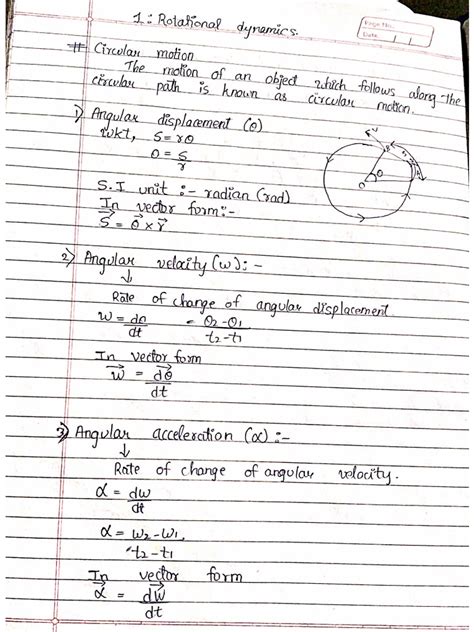 Page No.
Date
1 : Rotational dynamics.
# Circular motion
The motion of an object which follows along the
circular path is known as circular motion.
1) Angular displacement (θ)
wkt, S = rθ
θ = S/r
S.I unit :- radian (rad)
In vector form:-
S⃗ = θ⃗ × r⃗
2) Angular velocity (ω) : -
↓
Rate of change of angular displacement
ω = dθ/dt = θ2 - θ1 / t2 - t1
In vector form
ω⃗ = dθ⃗/dt
3) Angular acceleration (α) :-
↓
Rate of change of angular velocity.
α = dω/dt
α = ω2 - ω1 / t2 - t1
In vector form
α⃗ = dω⃗/dt